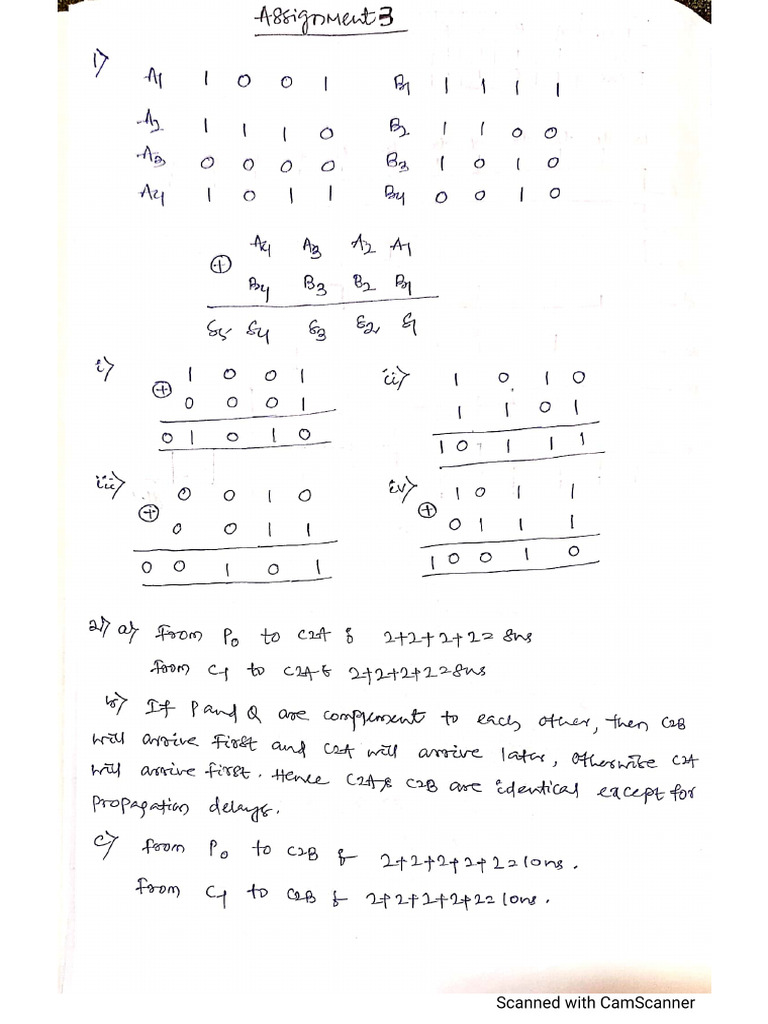 Assignment 3
1)
A1 1 0 0 1 B1 1 1 1 1
A2 1 1 1 0 B2 1 1 0 0
A3 0 0 0 0 B3 1 0 1 0
A4 1 0 1 1 B4 0 0 1 0
A4 A3 A2 A1
⊕
B4 B3 B2 B1
S5 S4 S3 S2 S1
i) 1 0 0 1
⊕ 0 0 0 1
0 1 0 1 0
ii) 1 0 1 0
1 1 0 1
1 0 1 1 1
iii) 0 0 1 0
⊕ 0 0 1 1
0 0 1 0 1
iv) 1 0 1 1
⊕ 0 1 1 1
1 0 0 1 0
2) a) From P0 to C2A : 2+2+2+2 = 8ns
from C1 to C2A : 2+2+2+2 = 8ns
b) If P and Q are complement to each other, then C2B
will arrive first and C2A will arrive later, otherwise C2A
will arrive first. Hence C2A & C2B are identical except for
propagation delays.
c) from P0 to C2B : 2+2+2+2+2 = 10ns.
from C1 to C2B : 2+2+2+2+2 = 10ns.
Scanned with CamScanner